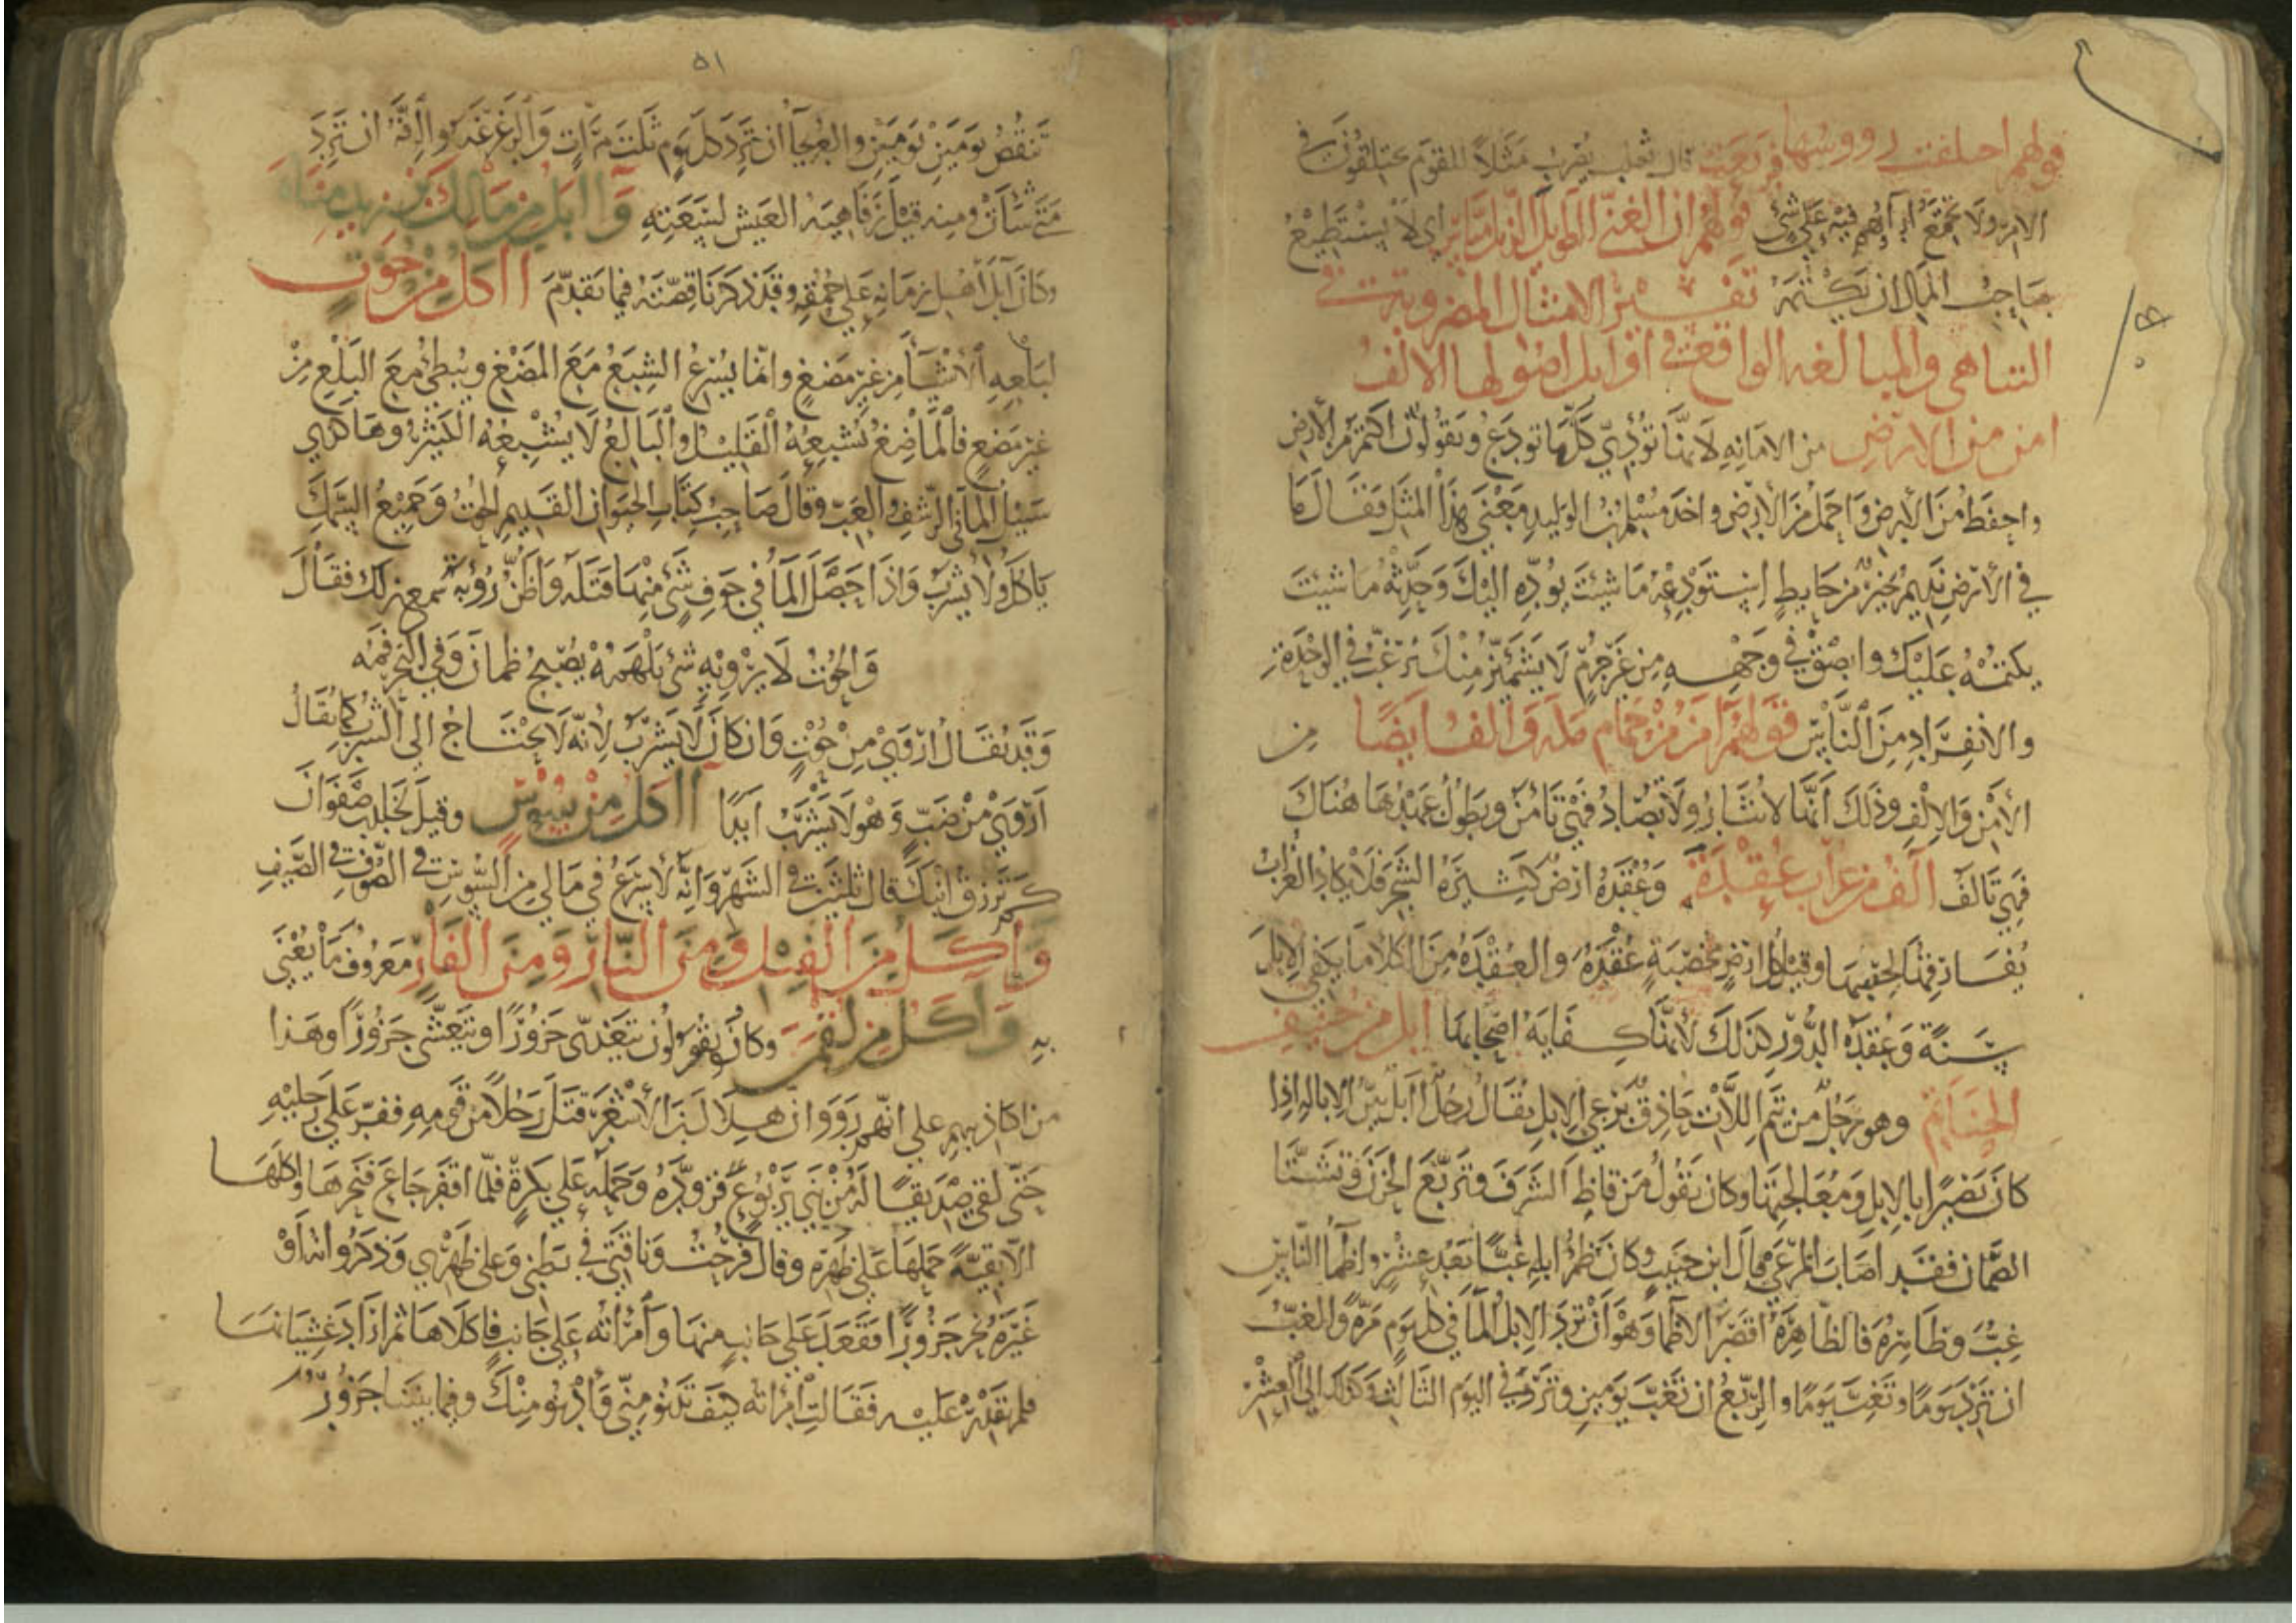 قولهم اختلفت رووسها فرتعت قال ثعلب يضرب مثلا للقوم يختلفون في
الامر ولا تجتمع اراهم فيه على شي وقولهم ان الغني الطويل الذيل مياس اي لا يستطيع
صاحب المال ان يكتمه تفسير الامثال المضروبة في
التناهي والمبالغه الواقعة في اوايل اصولها الالف
امن من الارض من الامانه لانها تؤدي كلما تودع ويقولون اكتم من الارض
واحفظ من الارض واحمل من الارض واخذ مسلم بن الوليد معنى هذا المثل فقال ما
في الارض نديم خير من حايط استودعه ما شيت يوده اليك وحدثه ما شيت
يكتمه عليك وابصق في وجهه من غير جرم لا يشمئز منك يرغب في الوحدة
والانفراد من الناس فقولهم امن من حمام مكه والف ايضا من
الامن والالف وذلك انها لا تثار ولا تصاد فهي تامن ويطول عهدها هناك
فهي تالف الف من غراب عقدة وعقدة ارض كثيرة الشجر فلا يكاد الغراب
يفارقها لخصبها وقيل كل ارض مخصبة عقدة والعقدة من الكلا ما يكفي الابل
سنة وعقدة الدور كذلك لانها كفاية اصحابها ابل من حنيف
الحناتم وهو رجل من تيم اللات حاذق برعي الابل يقال رجل ابل بين الاباله اذا
كان بصيرا بالابل ومعالجتها وكان يقول من قاظ الشرف وتربع الحزن وتشتا
الصمان فقد اصاب المرعى قال ابن حبيب وكان ظمؤ ابله غبا بعد عشر واظما الناس
غب وظاهرة فالظاهرة اقصر الاظما وهو ان ترد الابل الما في كل يوم مرة والغب
ان ترد يوما وتغب يوما والربع ان تغب يومين وترد في اليوم الثالث وكذلك الى العشر
٥١
تنقص يومين يومين والعريجا ان ترد كل يوم ثلث مرات والرغرغه والرفه ان ترد
متى شات ومنه قيل رفاهية العيش لسعته وابل من مالك بن زيد مناه
وكان ابل اهل زمانه على حمقه وقد ذكرنا قصته فيما تقدم ااكل من حوت
لبلعه الاشيا من غير مضغ وانما يسرع الشبع مع المضغ ويبطي مع البلع من
غير مضغ فالماضغ يشبعه القليل والبالع لا يشبعه الكثير وهاكذي
سبيل الما في الرشف والعب وقال صاحب كتاب الحيوان القديم الحوت وجميع السمك
ياكل ولا يشرب واذا حصل الما في جوف شي منها قتله واظن رؤبة سمع ذلك فقال
والحوت لا يرويه شي يلهمه يصبح ظمان وفي البحر فمه
وقد يقال اروى من حوت وان كان لا يشرب لانه لا يحتاج الى الشرب كما يقال
اروى من ضب وهو لا يشرب ابدا ااكل من سوس وقيل لخالد بن صفوان
كم ترزق ابنك قال ثلثين في الشهر وانه لاسرع في مالي من السوس في الصوف في الصيف
واكل من الفيل ومن النار ومن الفار معروف ما يعنى
به واكل من لقمن وكان يقولون يتغدى جزورا ويتعشى جزورا وهذا
من اكاذيبهم على انهم رووا ان هلال بن الاشعر قتل رجلا من قومه ففر على رجليه
حتى لقي صديقا له من بني يربوع فزوده وحمله على بكرة فلما اقفر جاع فنحرها واكلها
الا بقية حملها على ظهره وقال فرحت وناقتي في بطني وعلى ظهري وذكروا انه او
غيره نحر جزورا فقعد على جانب منها وامراته على جانب فاكلاها ثم اراد غشيانها
فلم يقدر عليه فقالت امراته كيف تدنو مني وادنو منك وفيما بيننا جزور